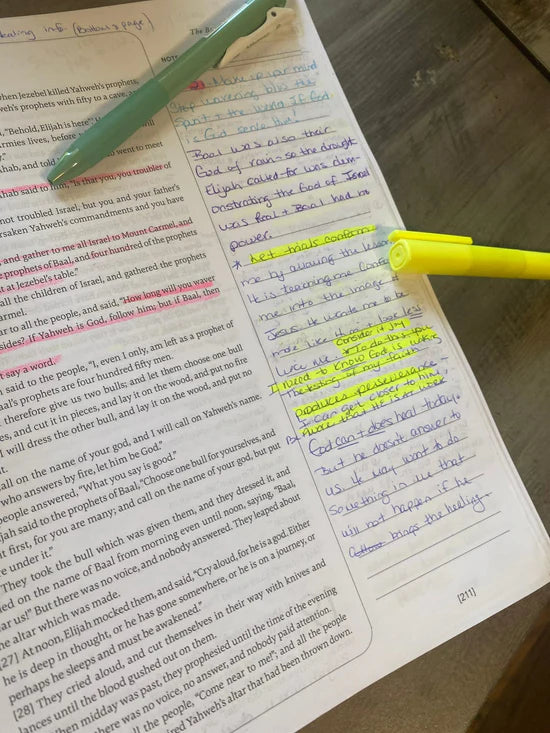 ealing info. (Bottom of page)
The B
NOT
hen Jezebel killed Yahweh's prophets,
weh's prophets with fifty to a cave, a
"Behold, Elijah is here"
rmies lives, before
y."
hab, and told
went to meet
hab said to him, "Is that you, you troubler of
not troubled Israel, but you and your father's
rsaken Yahweh's commandments and you have
and gather to me all Israel to Mount Carmel, and
e prophets of Baal, and four hundred of the prophets
at at Jezebel's table."
all the children of Israel, and gathered the prophets
armel.
ar to all the people, and said, "How long will you waver
sides? If Yahweh is God, follow him; but if Baal, then
t say a word.
said to the people, "I, even I only, am left as a prophet of
aal's prophets are four hundred fifty men.
therefore give us two bulls; and let them choose one bull
es, and cut it in pieces, and lay it on the wood, and put no fire
I will dress the other bull, and lay it on the wood, and put no
it.
all on the name of your god, and I will call on Yahweh's name.
who answers by fire, let him be God."
people answered, "What you say is good."
jah said to the prophets of Baal, "Choose one bull for yourselves, and
it first, for you are many; and call on the name of your god, but put
e under it."
They took the bull which was given them, and they dressed it, and
ed on the name of Baal from morning even until noon, saying, "Baal,
ar us!" But there was no voice, and nobody answered. They leaped about
he altar which was made.
[27] At noon, Elijah mocked them, and said, "Cry aloud, for he is a god. Either
he is deep in thought, or he has gone somewhere, or he is on a journey, or
perhaps he sleeps and must be awakened."
[28] They cried aloud, and cut themselves in their way with knives and
lances until the blood gushed out on them.
hen midday was past, they prophesied until the time of the evening
here was no voice, no answer, and nobody paid attention.
all the people, "Come near to me!"; and all the people
ired Yahweh's altar that had been thrown down.
Make up your mind
Stop wavering b/w the
Spirit + the world. If God
is God serve Him!
Baal was also their
God of rain - so the drought
Elijah called for was dem-
onstrating the God of Israel
was Real + Baal had no
power.
* Let trials conform
me by allowing the lesson
It is teaching me
me into the image
Jesus. He wants me to be
more like Him + look less
like me.
Consider it Joy
* To do this you
need to know God is working
The testing of my faith
produces perseverance -
I can get closer to him
aware that He is at work
God can + does heal today.
But he doesn't answer to
us. He may want to do
something in me that
will not happen if he
brings the healing -
[211]